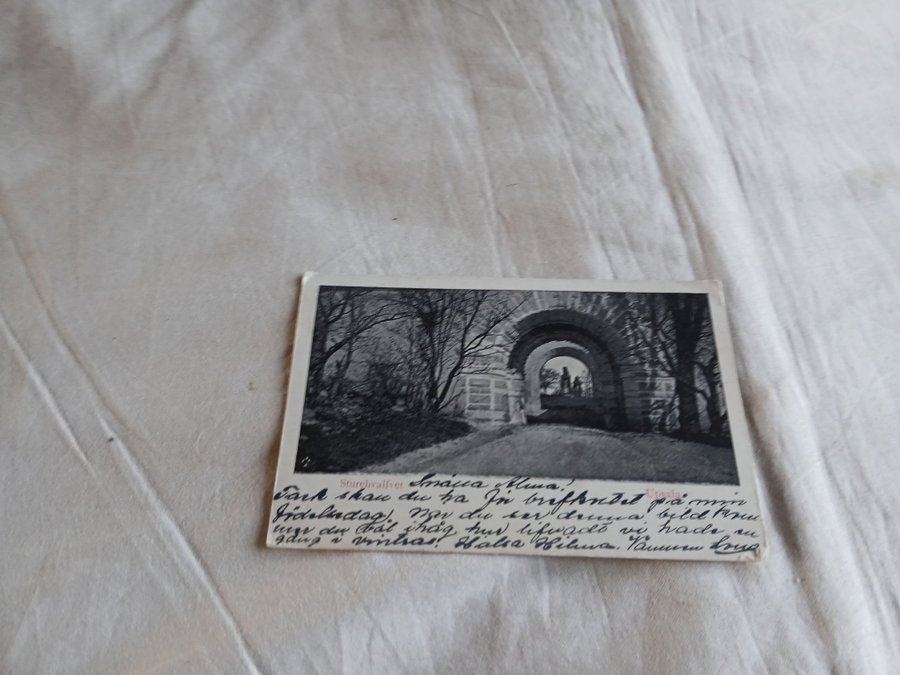 Sturehvalfvet Upsala
Snälla Alma!
Tack skall du ha för brefkortet på min
födelsedag! När du ser denna bild kom-
mer du väl ihåg hur vi hade en
gång i vintras! Hälsa Hilma. Vännen